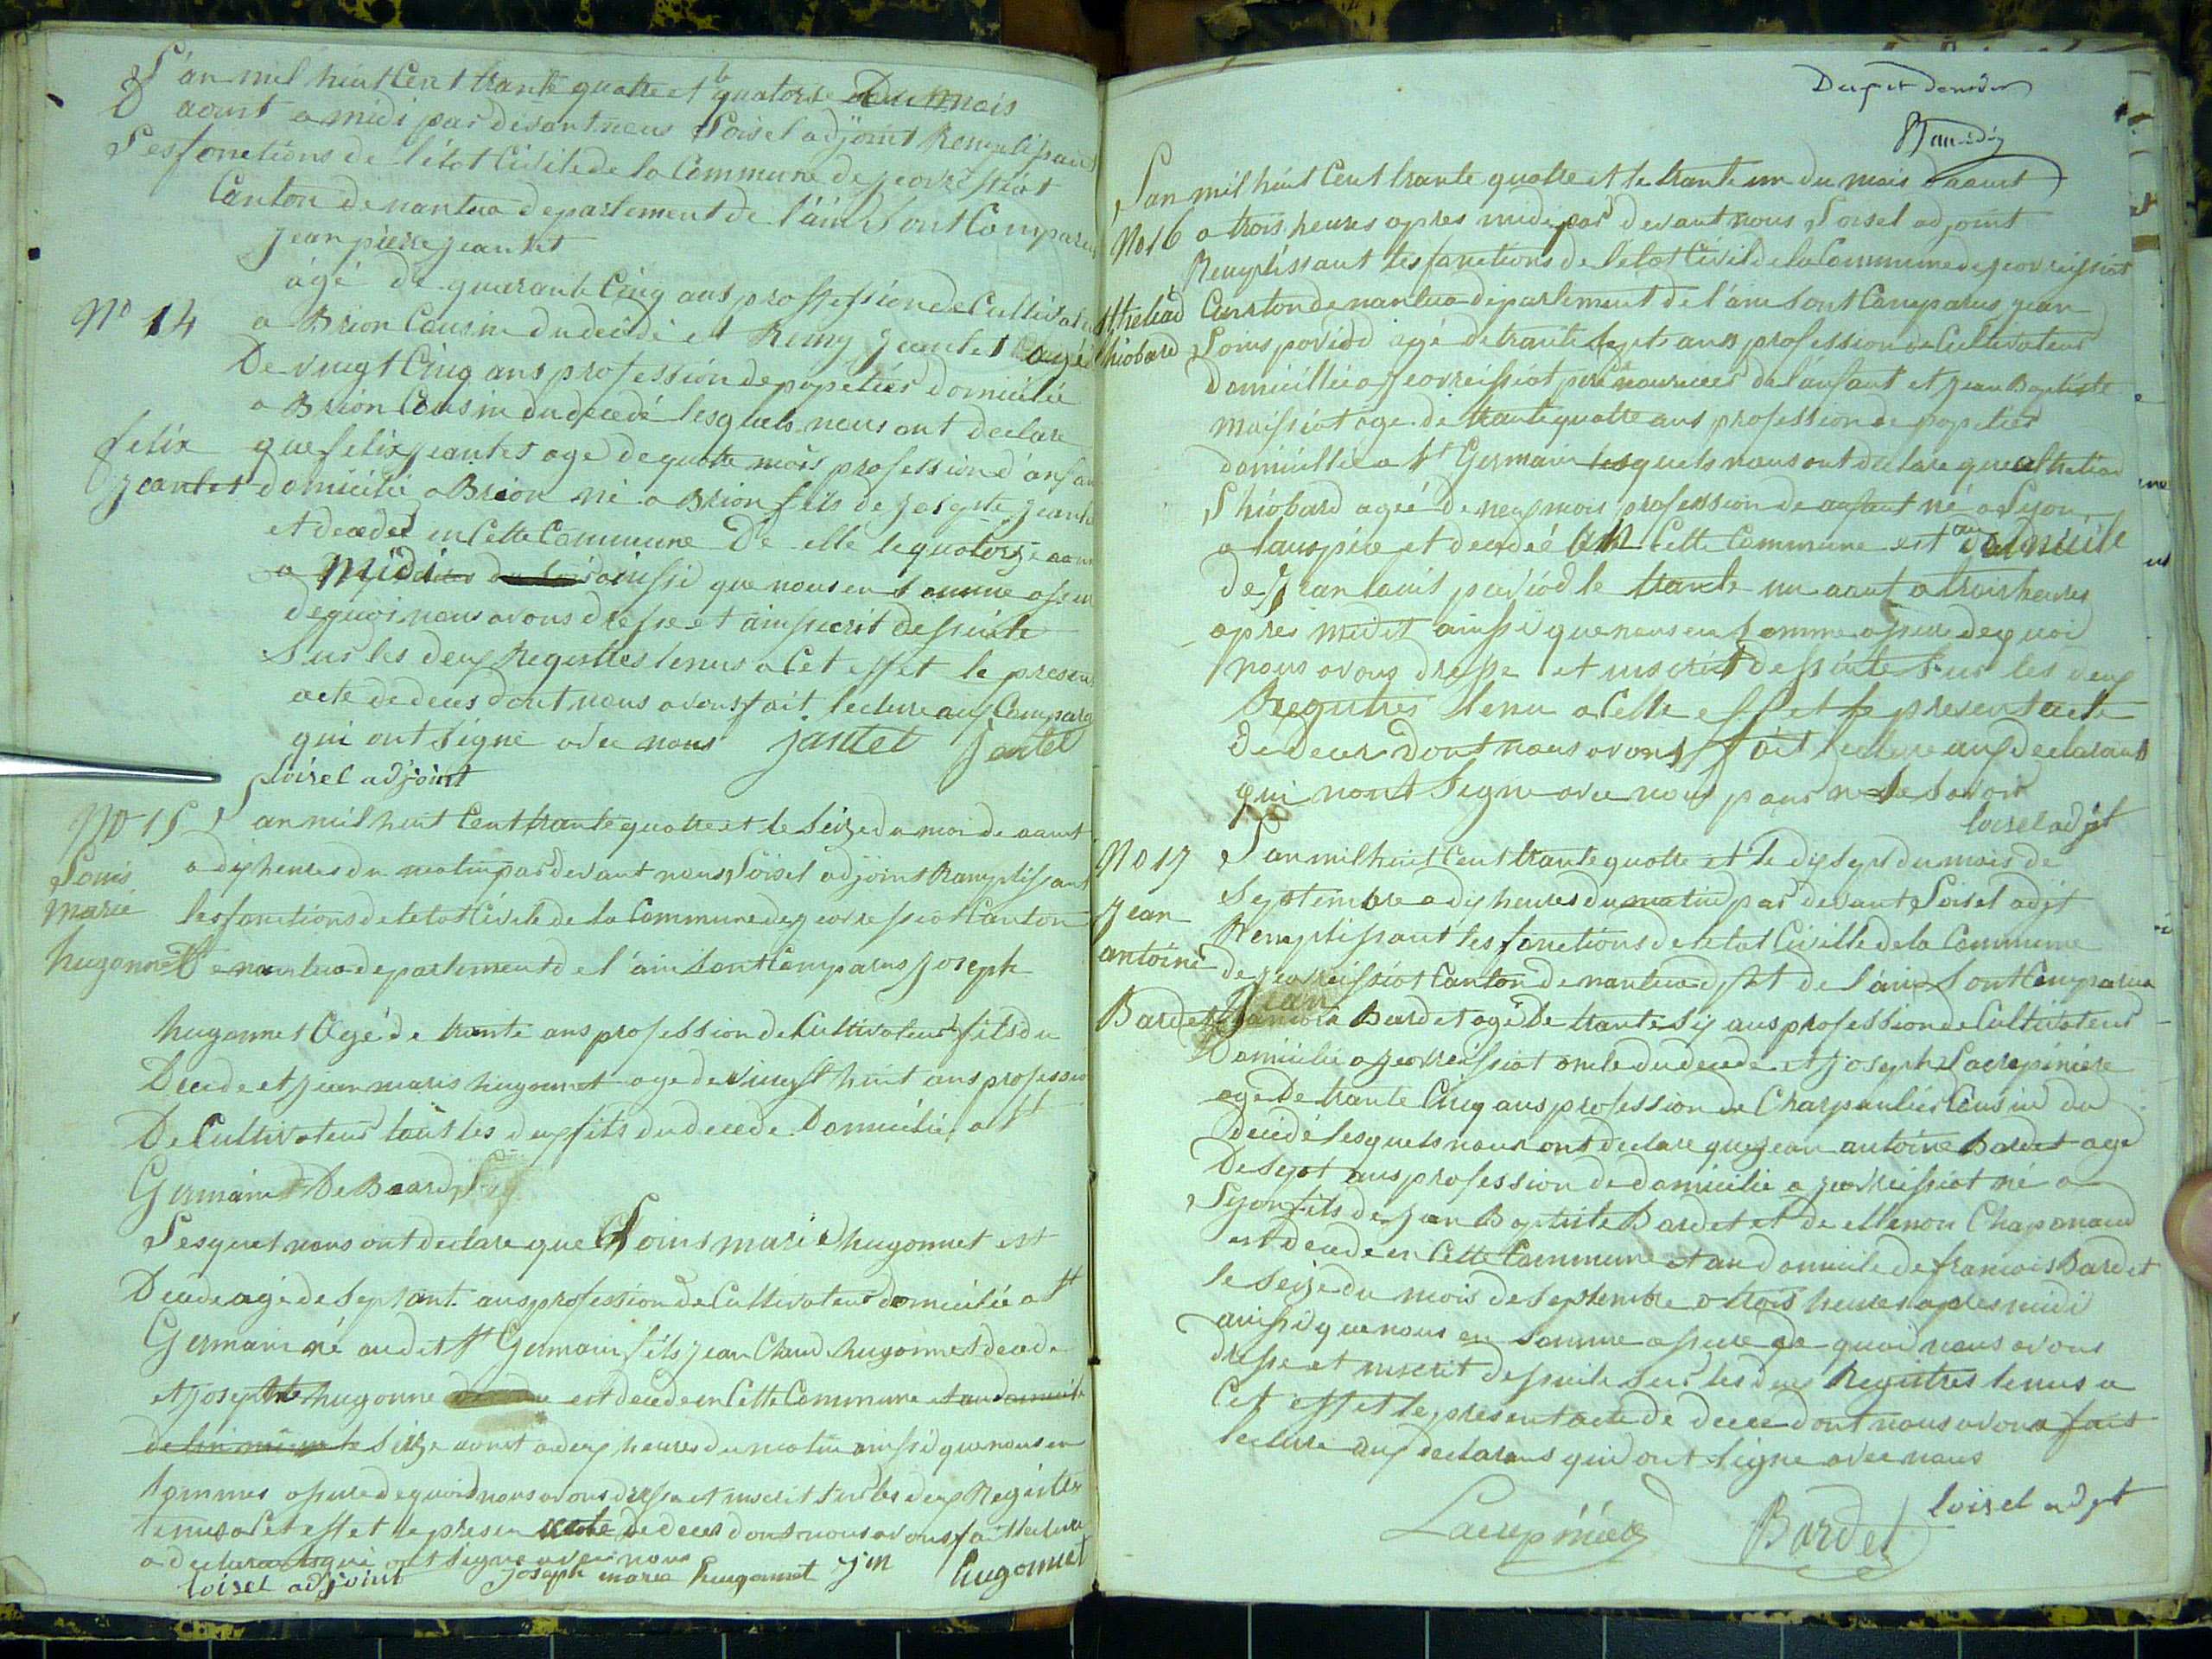 L'an mil huit Cent trante quatre et le quatorse Du mois
D aoust a midi par devant nous Loisel adjoint Remplissant
Les fonctions de l'état Civile de la Commune de jeovressiat
Canton de nantua departement de l'ain Sont Comparus
jean pierre jeantet
N° 14
agé de quarante Cinq ans proffession de Cultivateur
a Brion Cousin du decédé et Remy Jeantet agé
De vingt Cinq ans profession de papetier domicilié
a Brion Cousin du decedé lesquels nous ont declare
felix
jeantet
que felix jeantet age de quatre mois profession d'anfant
domicilié a Brion né a Brion fils de Josepte jeantet
et decedée en Cette Commune D'e elle le quatorse aout
a Midi ainssi que nous en somme assure
dequoi nous avons dresse et ainsscrit dessuite
Sur les deux Registres tenus a Cet effet le present
acte de deces dont nous avons fait lecture aux Compara
qui ont signe avec nous jantet Jantet
Loisel adjoint
N° 15
L'an mil huit Cent trante quatre et le Seize du moi de aout
a dix heures du matin par devant nous Loisel adjoint Ramplissant
Louis
marie
hugonnet
les fonctions de letat Civile de la Commune de jeovressiat Canton
De nantua departement de l'ain sont Comparus Joseph
hugonnet agé de trante ans profession de Cultivateur fils du
Decede et jean marie hugonnet age de vingt huit ans profession
De Cultivateur tout les deux fils du decede Domicilie a St
Germain De Beard
Lesquel nous ont declare que Louis marie hugonnet est
Decede agé de septant ans profession de Cultivateur domicilié a St
Germain né audet St Germain fils jean Claud hugonnet decede
et josephte hugonne est decede en Cette Commune et au domicile
de lui même le Seize aout a dex heures du matin ainssi que nous en
sommes assure dequoi nous avons dresse et inscrit sur les deux Registres
tenus a Cet effet le presen acte de deces dont nous avons fait lecture
a declarants qui ont signe avec nous
loisel adjoint joseph marie hugonnet jm hugonnet
L'an mil huit Cent trante quatre et le trante un du mois d'aout
N° 16
a trois heures apres midi par devant nous Loisel adjoint
Remplissant les fonctions de l'état Civil de la Commune de jeovreissiat
Canston de nantua departement de l'ain sont Comparus jean
Thiobard
Louis poviod agé de trante sept ans profession de Cultivateur
Domicillié a jeovreissiat pere nouricier de l'anfant et jean Baptiste
maissiat age de trante quatre ans profession de papetier
domicillie a St Germain lesquels nous ont declare que
Thiobard ageé de neuf mois profession de anfant né a Lyon
a lauspice et decedeé en Cette Commune est au domicile
de Jean louis poviod le trante un aout a trois heures
apres midit ainssi que nous en somme assure dequoi
nous avons dresse et inscrit dessuite sur les deux
Registres tenu a Cette effet le present acte
de deces dont nous avons fait lecture aux declarants
qui nont signe avec nous pour ne le savoir
loisel adjt
N° 17
L'an mil huit Cent trante quatre et le dix sept du mois de
Septembre a dix heures du matin par devant Loisel adjt
Jean
antoine
Bardet
Remplissant les fonctions de letat Civille de la Commune
de jeovreissiat Canton de nantua dept de l'ain sont Comparus
Bardet agé De trante six ans profession de Cultivateur
Domicilie a jeovreissiat oncle du decede et joseph Lacrepiniere
agé De trante Cinq ans profession de Charpantier Cousin du
decidé lesquels nous ont declare que jean antoine Bardet age
De sept ans profession de domicilie a jeovreissiat né a
Lyon fils de jean Baptiste Bardet et de ellenon Chaponaud
est decede en Cette Commune et au domicile de francois Bardet
le seize du mois de septembre a trois heures apres midi
ainssi que nous en somme assure de quoi nous avons
dresse et inscrit dessuite sur les deux Registres tenus a
Cet effet le present acte de deces dont nous avons fait
lecture aux declarans qui ont signe avec nous
Bardet loisel adjt